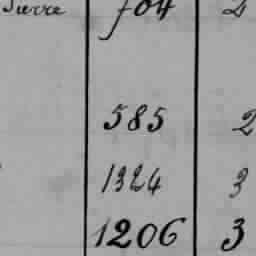 Pierre 704 2
585 2
1324 3
1206 3